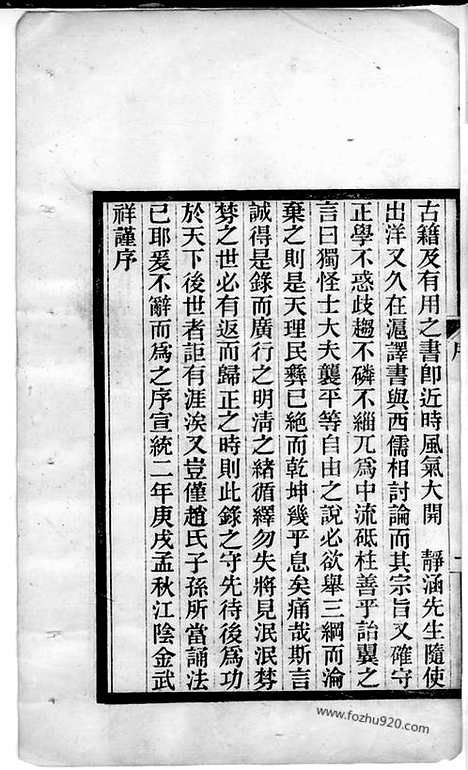 古籍及有用之書即近時風氣大開　靜涵先生隨使
出洋又久在滬譯書與西儒相討論而其宗旨又確守
正學不惑歧趨不磷不緇兀爲中流砥柱善乎詒翼之
言曰獨怪士大夫襲平等自由之說必欲舉三綱而淪
棄之則是天理民彝已絶而乾坤幾乎息矣痛哉斯言
誠得是錄而廣行之明清之緒循繹勿失將見泯泯棼
棼之世必有返而歸正之時則此錄之守先待後爲功
於天下後世者詎有涯涘又豈僅趙氏子孫所當誦法
已耶爰不辭而爲之序宣統二年庚戌孟秋江陰金武
祥謹序
www.fozhu920.com